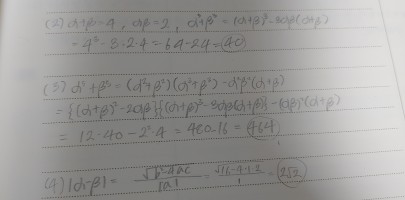 (2) α+β=4, αβ=2, α³+β³=(α+β)³-3αβ(α+β)
=4³-3·2·4=64-24=40
(3) α⁵+β⁵=(α²+β²)(α³+β³)-α²β²(α+β)
={(α+β)²-2αβ}{(α+β)³-3αβ(α+β)}-(αβ)²(α+β)
=12·40-2²·4=480-16=464
(4) |α-β|=√b²-4ac/|a|=√16-4·1·2/1=2√2